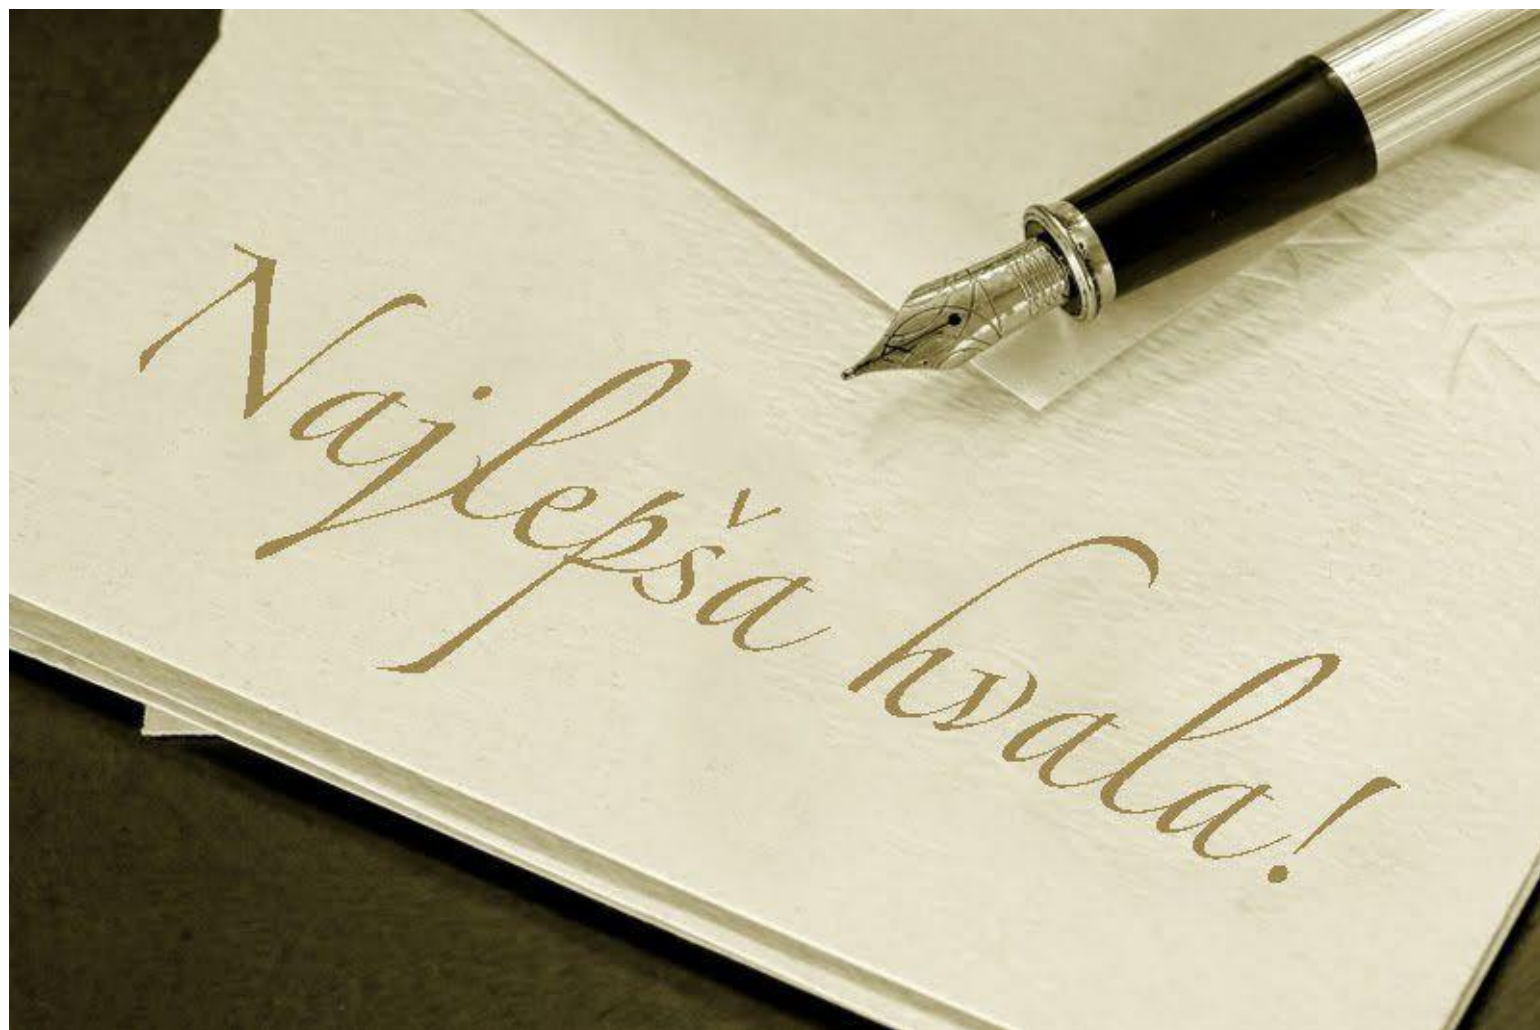 Najlepša hvala!